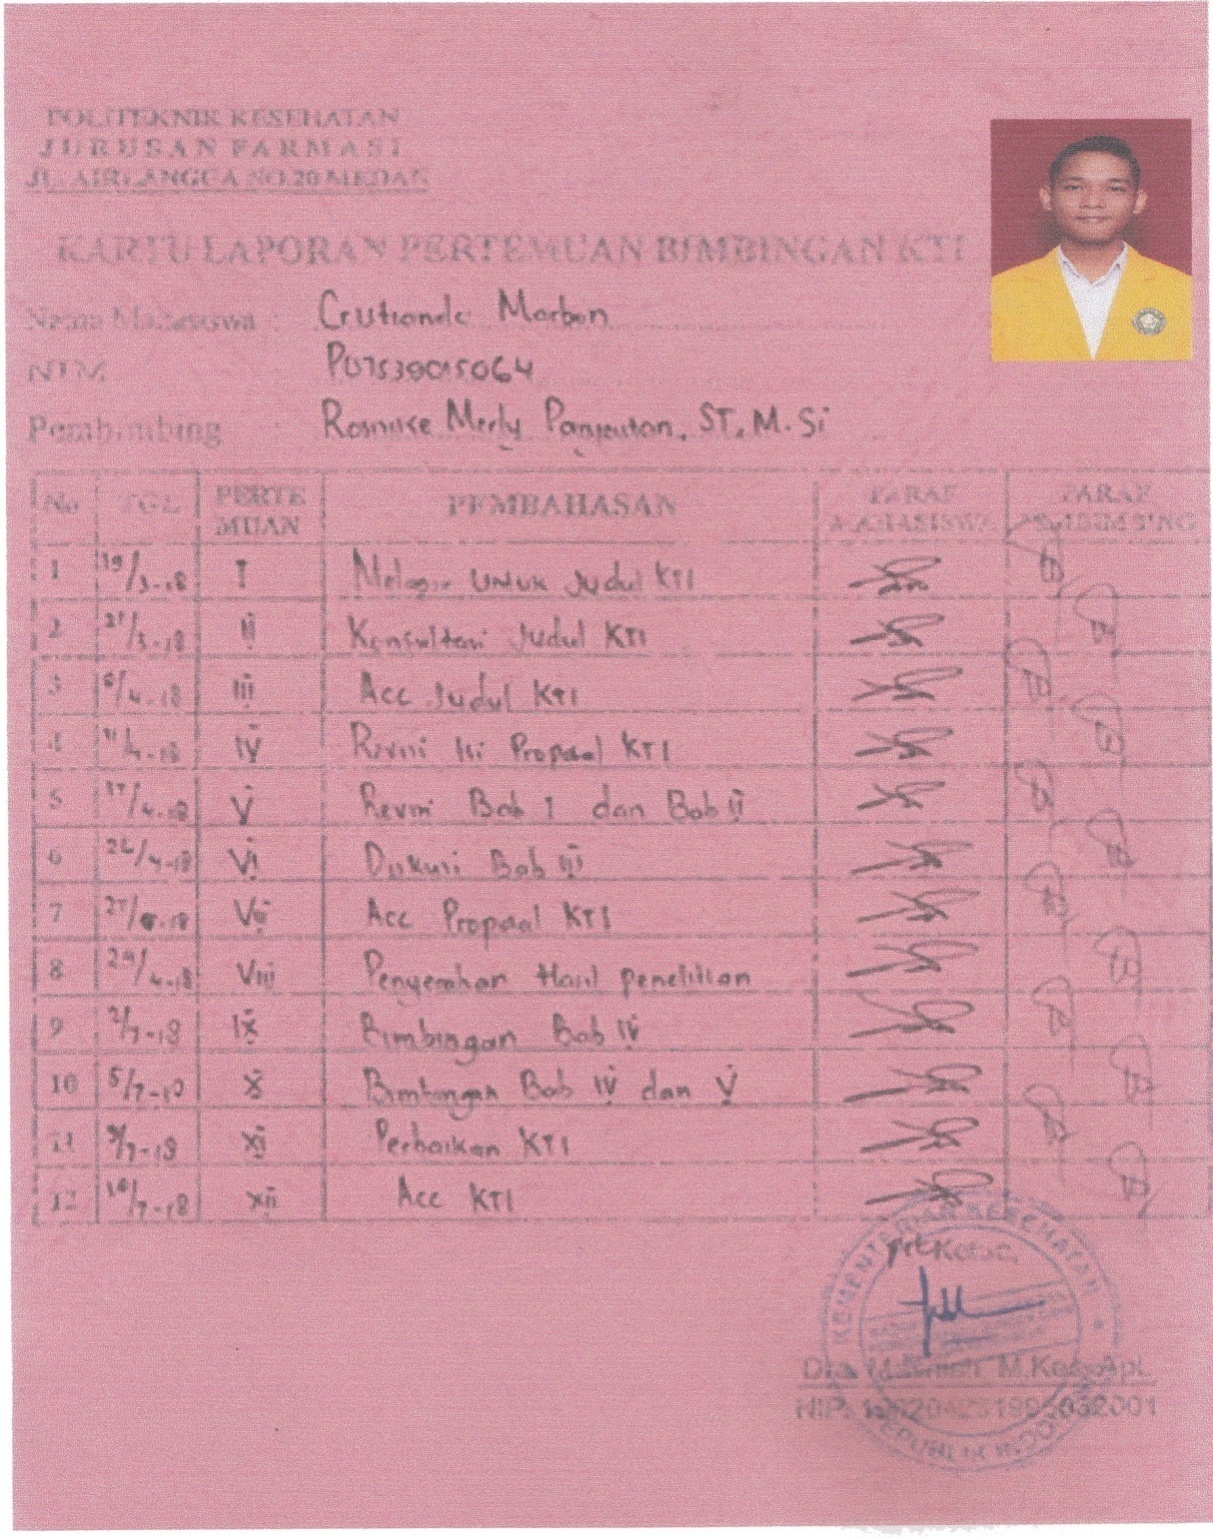 POLITEKNIK KESEHATAN
JURUSAN FARMASI
JL. AIRLANGGA NO.20 MEDAN
KARTU LAPORAN PERTEMUAN BIMBINGAN KTI
Nama Mahasiswa :
NIM P07539015064
Pembimbing : Rosnike Merly Panjaitan, ST, M.Si
No TGL PERTE MUAN PEMBAHASAN PARAF MAHASISWA PARAF PEMBIMBING
1 19/3-18 I Melapor untuk Judul KTI
2 21/3-18 II Konsultasi Judul KTI
3 /4-18 III Acc Judul KTI
4 11/4-18 IV Revisi Isi Proposal KTI
5 17/4-18 V Revisi Bab I dan Bab II
6 /4-18 VI Diskusi Bab III
7 VII Acc Proposal KTI
8 /4-18 VIII Penyerahan Hasil penelitian
9 2/7-18 IX Bimbingan Bab IV
10 5/7-18 X Bimbingan Bab IV dan V
11 9/7-18 XI Perbaikan KTI
12 /7-18 XII Acc KTI
KEMENTERIAN KESEHATAN
Ketua,
Dra. M.Kes., Apt.
NIP.
REPUBLIK INDONESIA